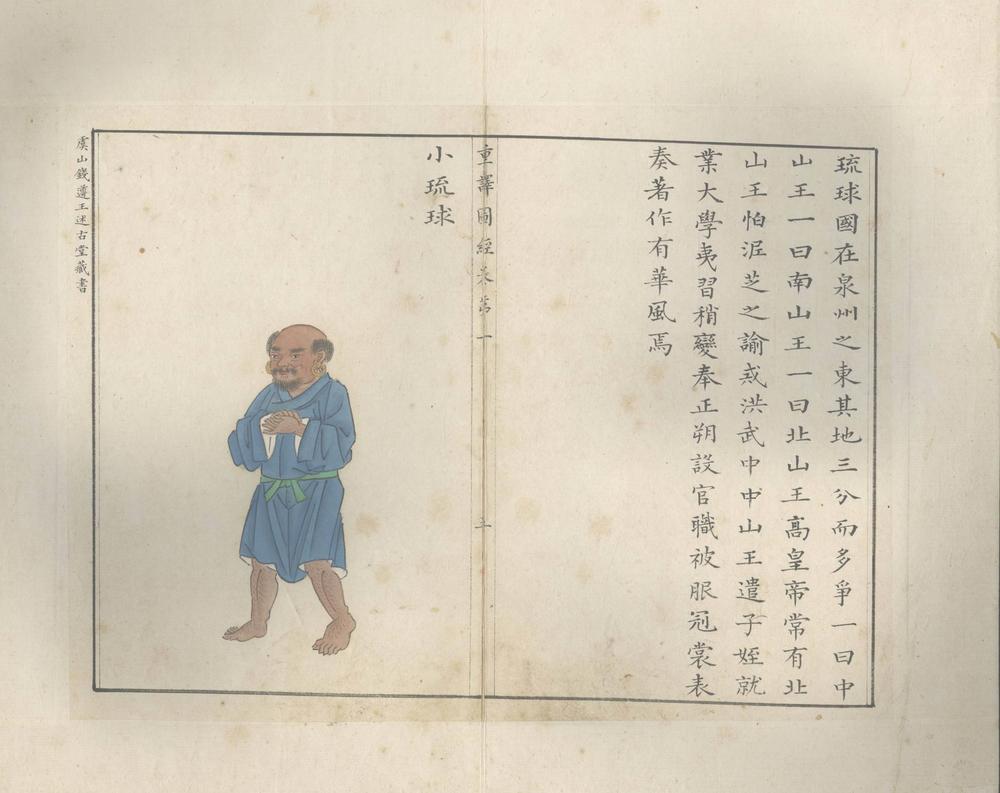 琉球國在泉州之東其地三分而多爭一曰中
山王一曰南山王一曰北山王高皇帝常有北
山王怕泥芝之諭或洪武中中山王遣子姪就
業大學夷習稍變奉正朔設官職被服冠裳表
奏著作有華風焉
重譯圖經卷第一
五
小琉球
虞山錢遵王述古堂藏書